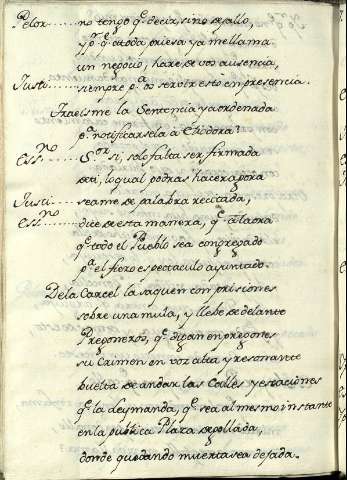 Pelor.... no tengo q.e decir, sino q.e fallo,
y p.r q.e a toda priesa ya me llama
un negocio, hare de vos ausencia,
Justo...... siempre p.a os servir estoi en presencia.
Traeisme la Sentencia ya ordenada
p.a notificarsela à Elicidora?
Ess.no...... S.or si, solo falta ser firmada
de ti, lo qual podras hacer agora
Justi...... seame de palabra recitada,
Ess.no...... dice de esta manera, q.e à la ora
q.e todo el Pueblo sea congregado
p.a el fiero espectaculo ayuntado.
De la Carcel la saquen con prisiones
sobre una mula, y llebe delante
Pregoneros, q.e digan en pregones
su Crimen en voz alta y resonante
buelta de andar las Calles y estaciones
q.e la ley manda, q.e sea al mesmo instante
en la publica Plaza degollada,
donde quedando muerta sea dejada.